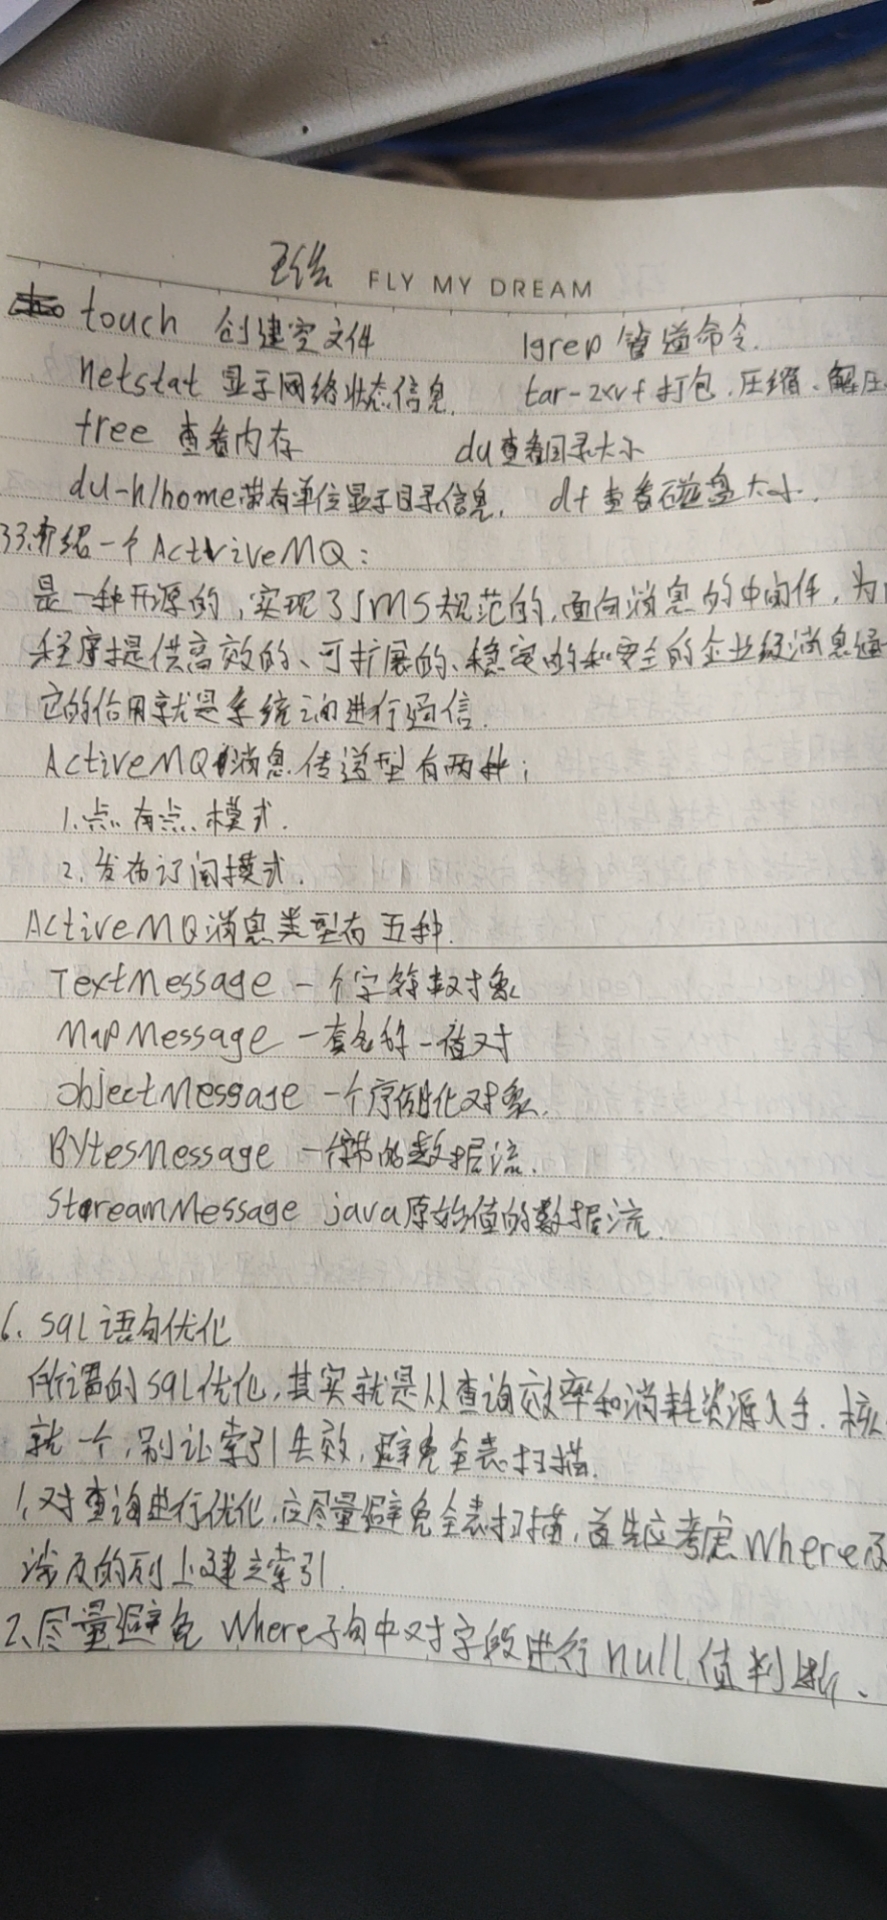 FLY MY DREAM
touch 创建空文件 |grep 管道命令.
netstat 显示网络状态信息. tar-zxvf 打包、压缩、解压
free 查看内存 du查看目录大小
du-h/home带有单位显示目录信息. df 查看磁盘大小.
33.介绍一个ActiveMQ:
是一种开源的,实现了JMS规范的,面向消息的中间件,为
程序提供高效的、可扩展的、稳定的和安全的企业级消息通
它的作用就是系统之间进行通信.
ActiveMQ消息传送型有两种;
1.点 点模式.
2.发布订阅模式.
ActiveMQ消息类型有五种.
TextMessage 一个字符串对象
MapMessage 一套名称-值对
ObjectMessage 一个序列化对象.
BytesMessage 一个字节的数据流.
StreamMessage java原始值的数据流.
6、SQL语句优化
所谓的SQL优化,其实就是从查询效率和消耗资源入手.核
就一个,别让索引失效,避免全表扫描.
1、对查询进行优化,应尽量避免全表扫描,首先应考虑Where及
涉及的列上建立索引.
2、尽量避免Where子句中对字段进行null值判断、